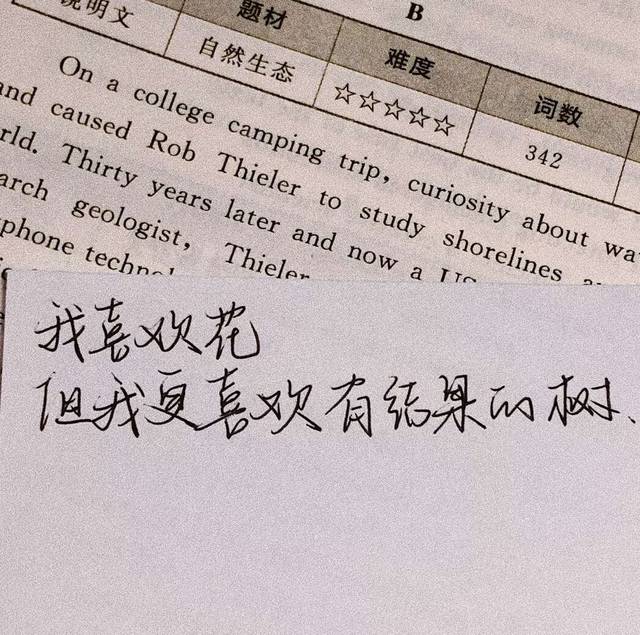 说明文 题材 B
自然生态 难度
☆☆☆☆☆ 词数
342
On a college camping trip, curiosity about wa
and caused Rob Thieler to study shorelines
rld. Thirty years later and now a US
arch geologist, Thieler
phone technol
我喜欢花
但我更喜欢有结果的树、